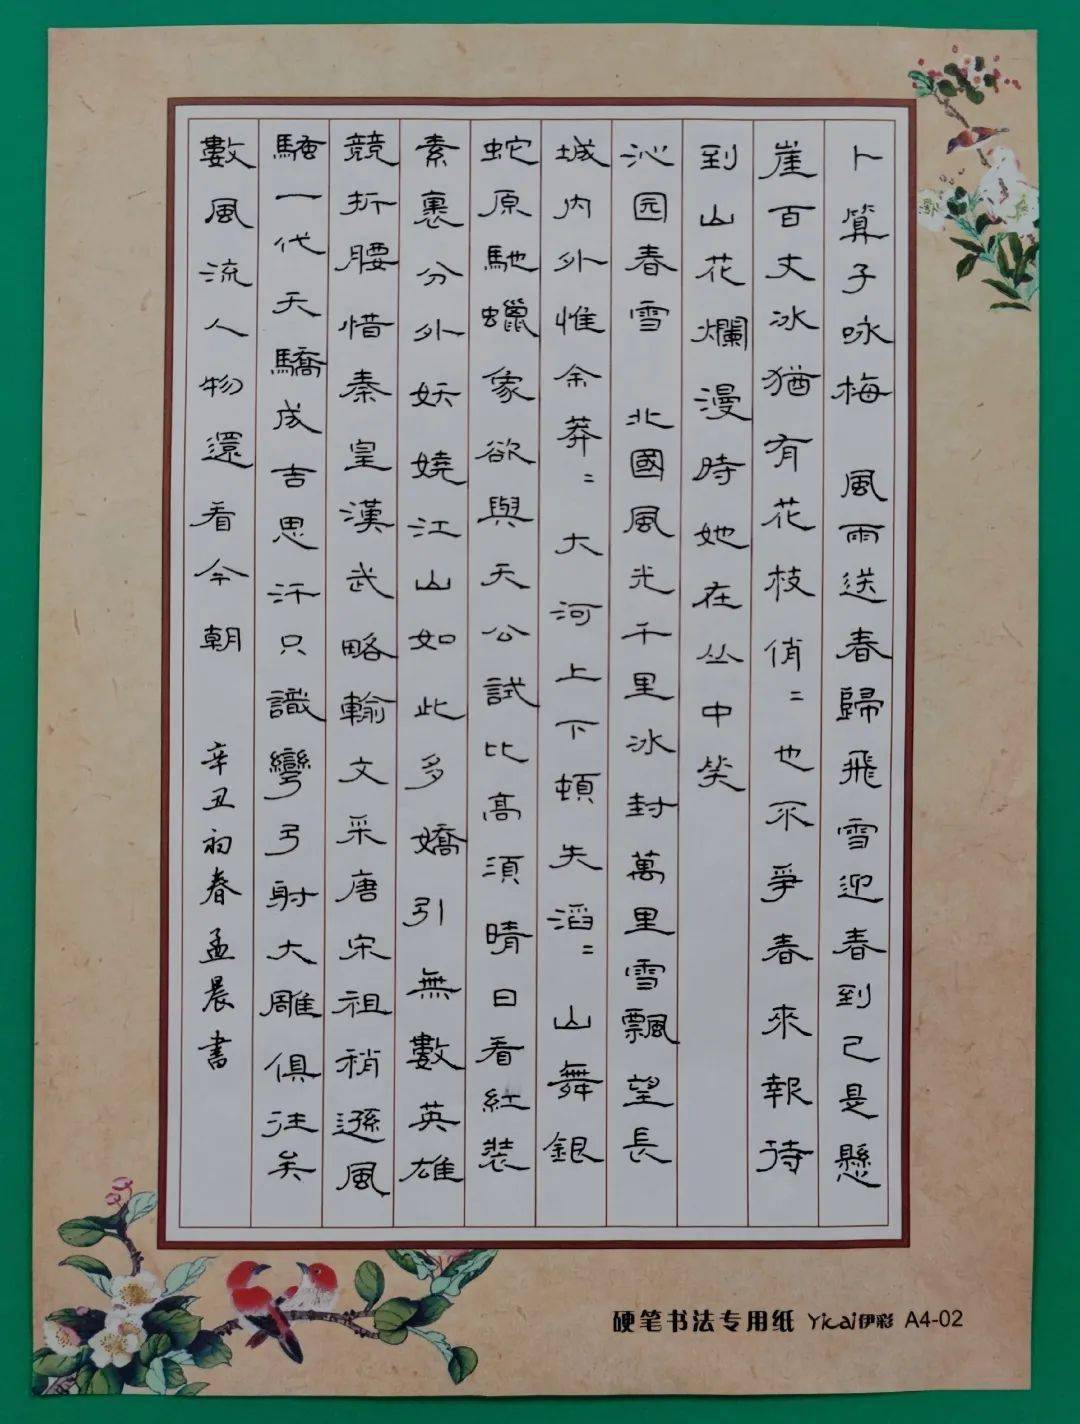 卜算子咏梅 風雨送春歸飛雪迎春到已是懸
崖百丈冰猶有花枝俏〻也不爭春來報待
到山花爛漫時她在丛中笑
沁园春雪 北國風光千里冰封萬里雪飄望長
城内外惟余莽〻大河上下頓失滔〻山舞銀
蛇原馳蠟象欲與天公試比高須晴日看紅装
素裹分外妖嬈江山如此多嬌引無數英雄
競折腰惜秦皇漢武略輸文采唐宋祖稍遜風
騷一代天驕成吉思汗只識彎弓射大雕俱往矣
數風流人物還看今朝 辛丑初春孟晨書
硬笔书法专用纸 Yicai伊彩 A4-02